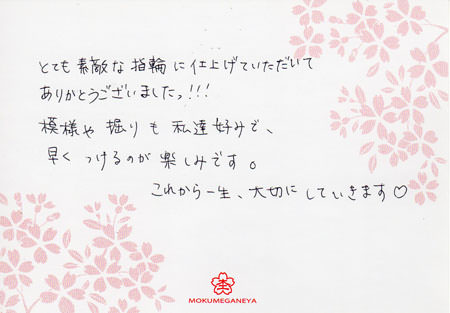 とても素敵な指輪に仕上げていただいて
ありがとうございましたっ!!!
模様や掘りも私達好みで、
早くつけるのが楽しみです。
これから一生、大切にしていきます♡
MOKUMEGANEYA